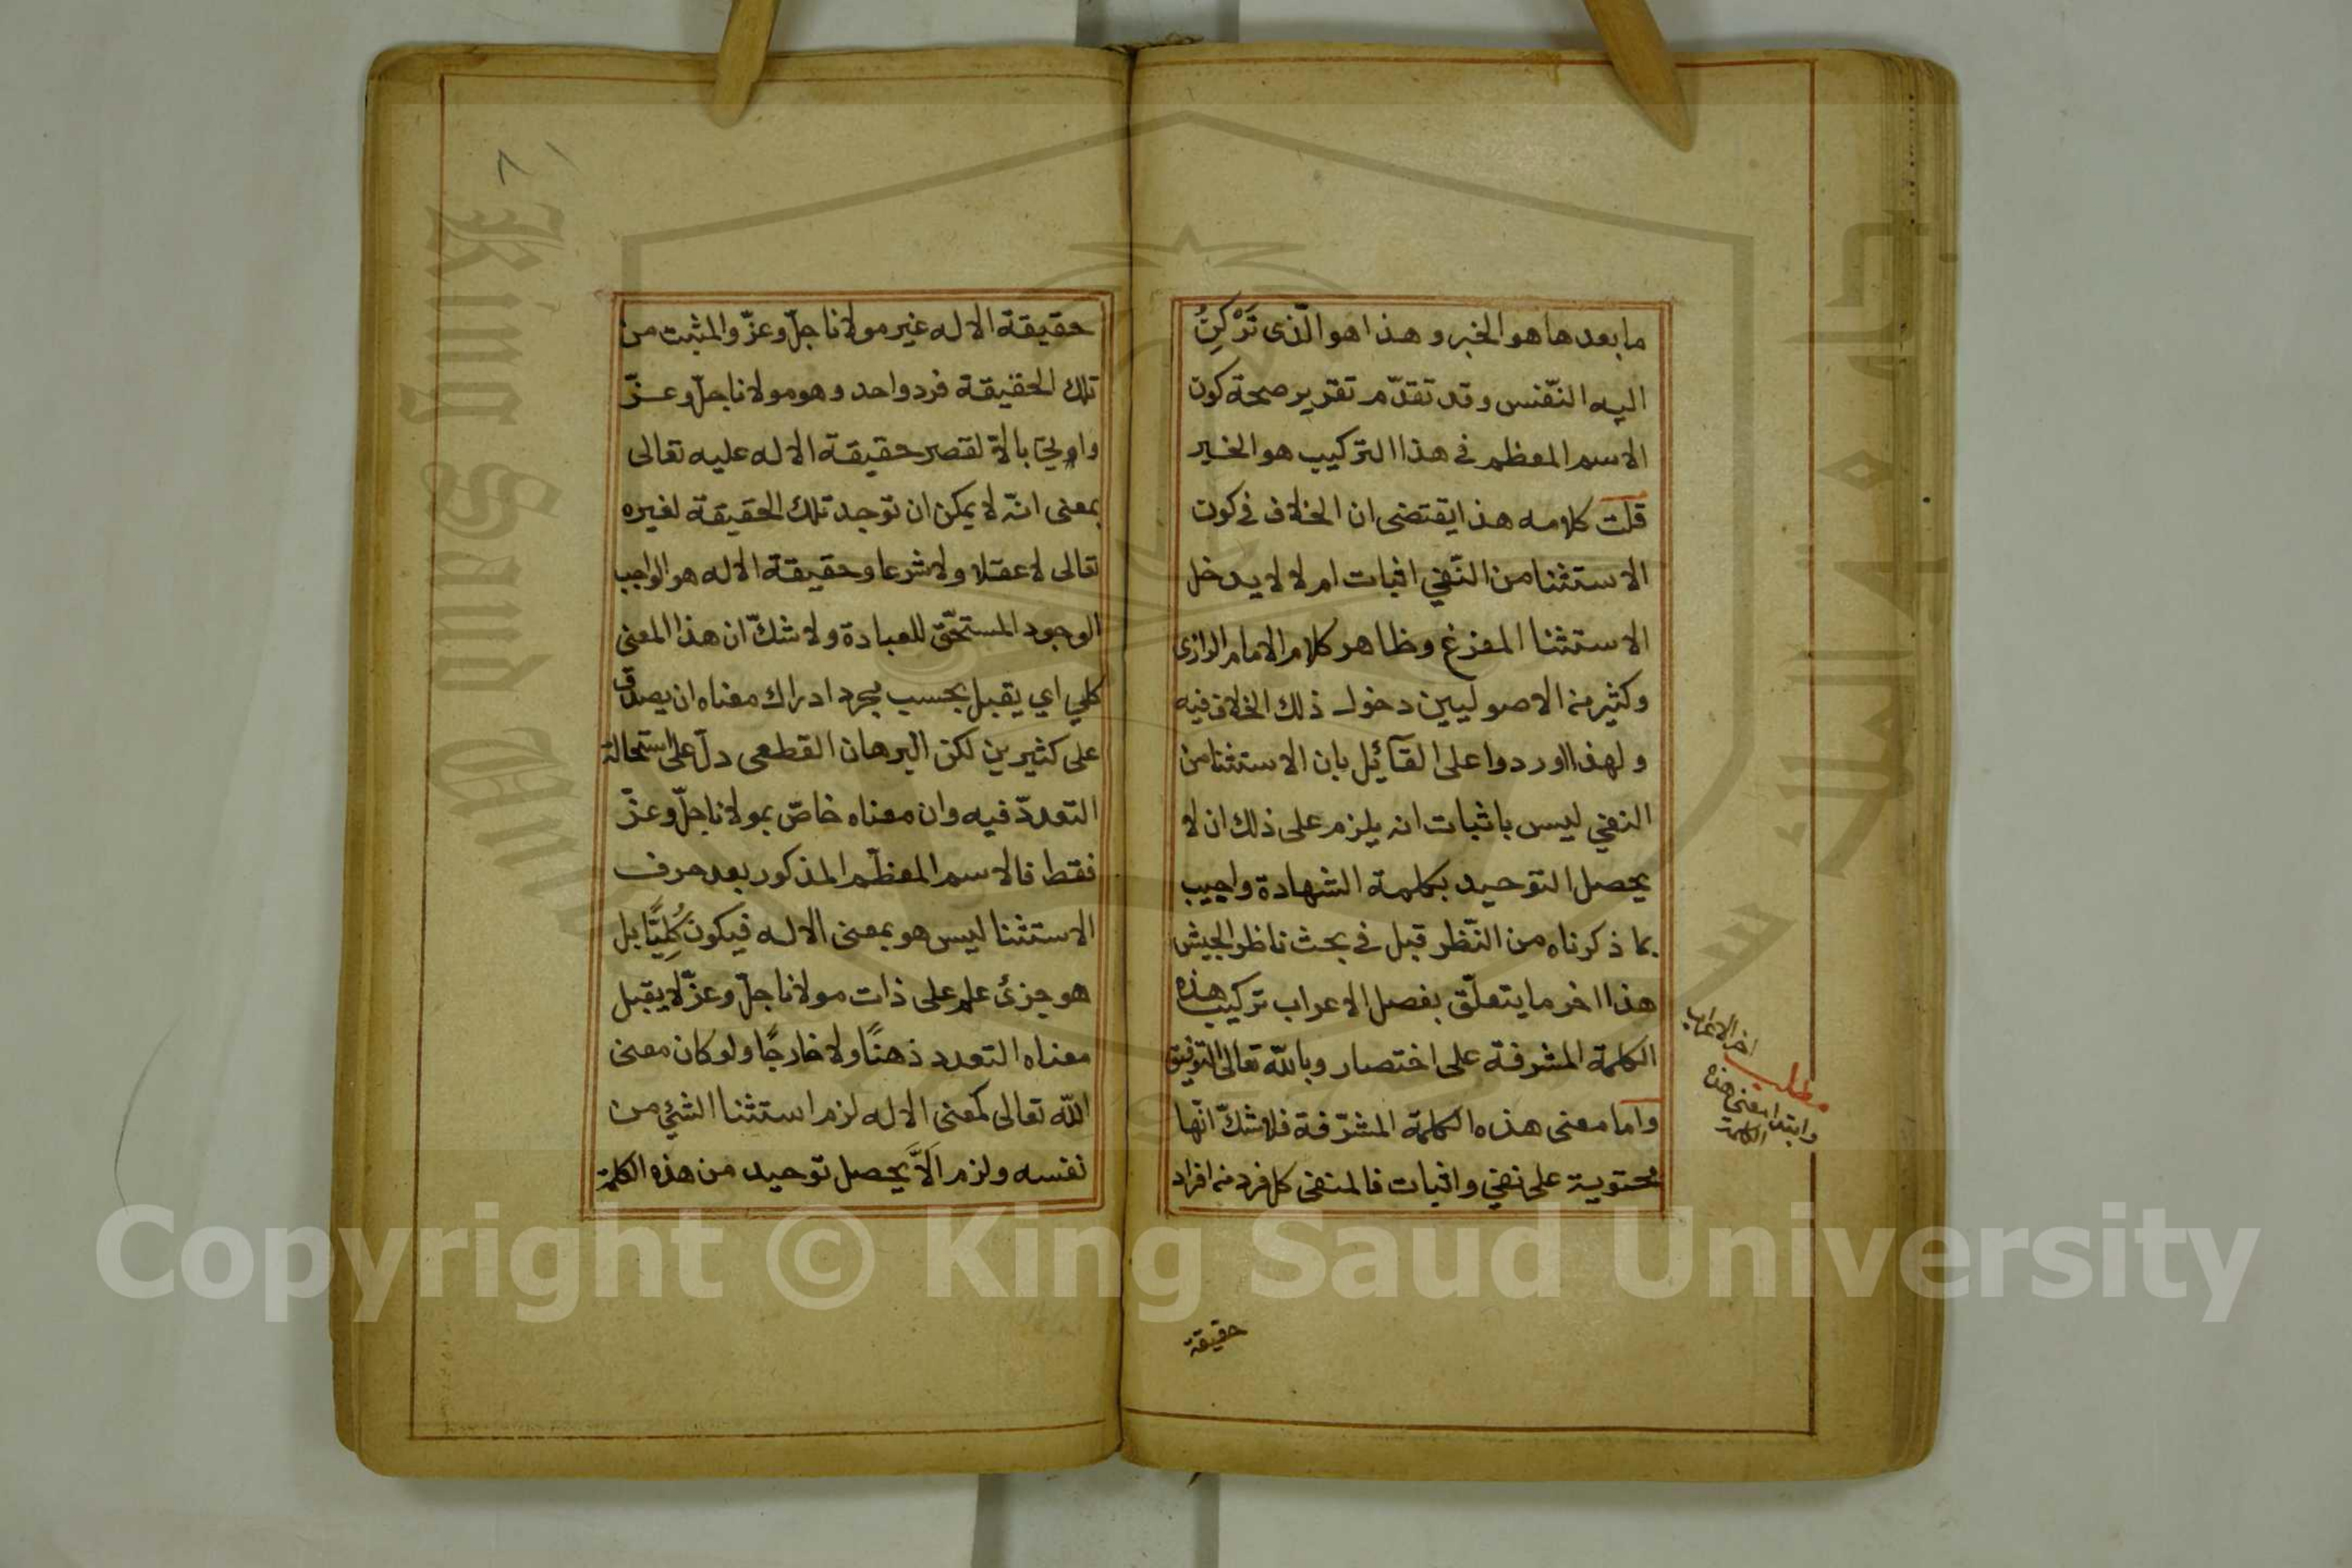 ما بعدها هو الخبر و هذا هو الّذى تَرْكَنُ
اليه النّفس وقد تقدّم تقرير صحة كون
الاسم المعظم فى هذا التركيب هو الخبر
قلت كلامه هذا يقتضى ان الخلاف فى كون
الاستثنا من النّفي اثبات ام لا لا يدخل
الاستثنا المفرغ وظاهر كلام الامام الرازى
وكثير من الاصوليين دخول ذلك الخلاف فيه
ولهذا اوردوا على القآئيل بان الاستثنا من
النفي ليس باثبات انه يلزم على ذلك ان لا
يحصل التوحيد بكلمة الشهادة واجيب
بما ذكرناه من النّظر قبل فى بحث ناظر الجيش
هذا اخر ما يتعلّق بفصل الاعراب تركيب هذه
الكلمة المشرفة على اختصار وبالله تعالى التوفيق
واما معنى هذه الكلمة المشرّفة فلا شكّ انّها
محتوية على نفي واثبات فالمنفى كل فرد من افراد
اخر الاعراب
مطلب
وابتدا معنى هذه
الكلمة
حقيقة
٨١
حقيقة الاله غير مولانا جلّ وعزّ والمثبت من
تلك الحقيقة فرد واحد وهو مولانا جلّ وعزّ
بالا لقصر حقيقة الاله عليه تعالى
بمعنى انّه لا يمكن ان توجد تلك الحقيقة لغيره
تعالى لا عقلا ولا شرعا وحقيقة الاله هو الواجب
الوجود المستحّق للعبادة ولا شكّ ان هذا المعنى
كلي اي يقبل بحسب مجرد ادراك معناه ان يصدق
على كثيرين لكن البرهان القطعى دلّ على استحالة
التعددّ فيه وان معناه خاصّ بمولانا جلّ وعزّ
فقط فالاسم المعظّم المذكور بعد حرف
الاستثنا ليس هو بمعنى الاله فيكون كُلِيًّا بل
هو جزئ علم على ذات مولانا جلّ وعزّ لا يقبل
معناه التعدد ذهنًا ولا خارجًا ولو كان معنى
الله تعالى كمعنى الاله لزم استثنا الشئ من
نفسه ولزم الاَّ يحصل توحيد من هذه الكلمة
Copyright © King Saud University